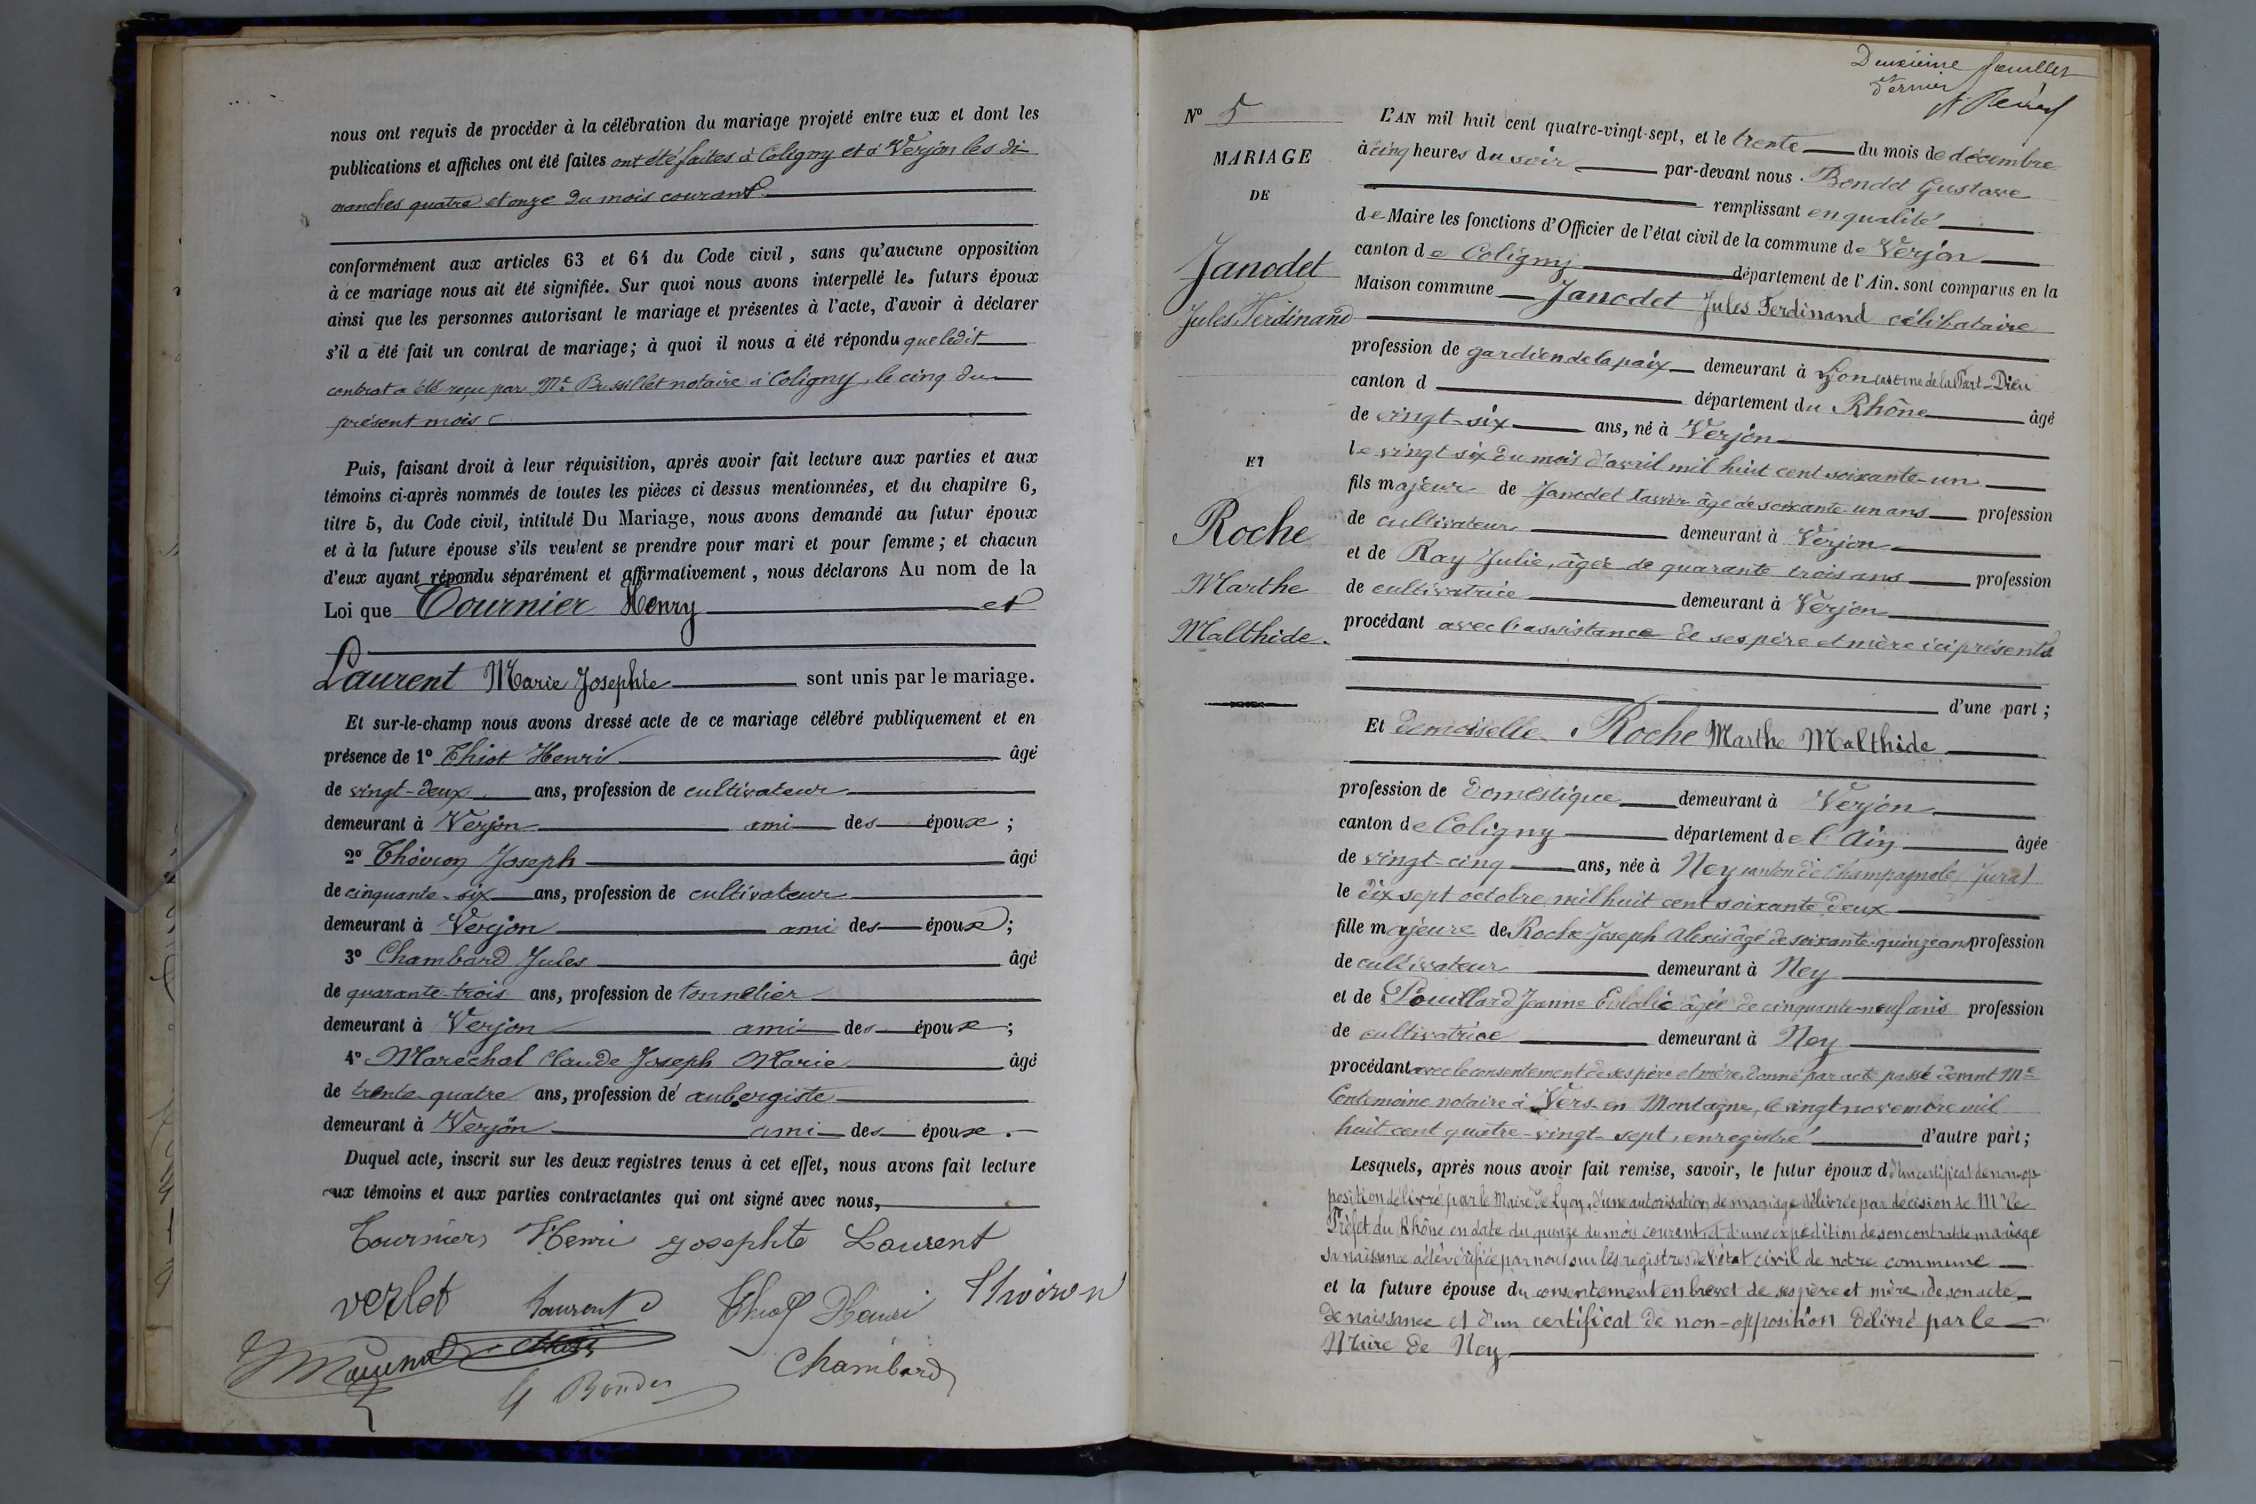 nous ont requis de procéder à la célébration du mariage projeté entre eux et dont les
publications et affiches ont été faites ont été faites à Coligny et à Verjon les di-
manches quatre et onze du mois courant
conformément aux articles 63 et 64 du Code civil, sans qu'aucune opposition
à ce mariage nous ait été signifiée. Sur quoi nous avons interpellé les futurs époux
ainsi que les personnes autorisant le mariage et présentes à l'acte, d'avoir à déclarer
s'il a été fait un contrat de mariage; à quoi il nous a été répondu que ledit
contrat a été reçu par Me notaire à Coligny, le cinq du
présent mois
Puis, faisant droit à leur réquisition, après avoir fait lecture aux parties et aux
témoins ci-après nommés de toutes les pièces ci dessus mentionnées, et du chapitre 6,
titre 5, du Code civil, intitulé Du Mariage, nous avons demandé au futur époux
et à la future épouse s'ils veulent se prendre pour mari et pour femme; et chacun
d'eux ayant répondu séparément et affirmativement, nous déclarons Au nom de la
Loi que Tournier Henry et
Laurent Marie Josephte sont unis par le mariage.
Et sur-le-champ nous avons dressé acte de ce mariage célébré publiquement et en
présence de 1° Thiot Henri âgé
de vingt-deux ans, profession de cultivateur
demeurant à Verjon ami des époux;
2° Thoviron Joseph âgé
de cinquante-six ans, profession de cultivateur
demeurant à Verjon ami des époux;
3° Chambard Jules âgé
de quarante-trois ans, profession de tonnelier
demeurant à Verjon ami des époux;
4° Maréchal Claude Joseph Marie âgé
de trente quatre ans, profession de aubergiste
demeurant à Verjon ami des époux.
Duquel acte, inscrit sur les deux registres tenus à cet effet, nous avons fait lecture
aux témoins et aux parties contractantes qui ont signé avec nous,
Tournier Henri Josephte Laurent
Verlet Laurent Thiot Henri Thoviron
Chambard
G Bondet
Deuxième feuillet
et dernier
N° 5
MARIAGE
DE
Janodet
Jules Ferdinand
ET
Roche
Marthe
Malthide.
L'AN mil huit cent quatre-vingt-sept, et le trente du mois de décembre
à cinq heures du soir par-devant nous Bondet Gustave
remplissant en qualité
de Maire les fonctions d'Officier de l'état civil de la commune de Verjon
canton de Coligny département de l'Ain. sont comparus en la
Maison commune Janodet Jules Ferdinand célibataire
profession de gardien de la paix demeurant à Lyon caserne de la Part-Dieu
canton d département du Rhône âgé
de vingt-six ans, né à Verjon
le vingt six du mois d'avril mil huit cent soixante-un
fils majeur de Janodet Xavier âgé de soixante-un ans profession
de cultivateur demeurant à Verjon
et de Ray Julie, âgée de quarante trois ans profession
de cultivatrice demeurant à Verjon
procédant avec l'assistance de ses père et mère ici présents
d'une part;
Et demoiselle Roche Marthe Malthide
profession de domestique demeurant à Verjon
canton de Coligny département de l'Ain âgée
de vingt-cinq ans, née à Ney canton de Champagnole (Jura)
le dix sept octobre mil huit cent soixante deux
fille majeure de Roche Joseph Alexis âgé de soixante-quinze ans profession
de cultivateur demeurant à Ney
et de Pouillard Jeanne Eulalie âgée de cinquante-neuf ans profession
de cultivatrice demeurant à Ney
procédant avec le consentement de ses père et mère, donné par acte passé devant Me
notaire à Vers en Montagne, le vingt novembre mil
huit cent quatre-vingt-sept, enregistré d'autre part;
Lesquels, après nous avoir fait remise, savoir, le futur époux d'un certificat de non-op-
position délivré par le Maire de Lyon, d'une autorisation de mariage délivrée par décision de Mr le
Préfet du Rhône en date du quinze du mois courant, et d'une expédition de son contrat de mariage
sa naissance a été vérifiée par nous sur les registres de l'état civil de notre commune
et la future épouse du consentement en brevet de ses père et mère, de son acte
de naissance et d'un certificat de non-opposition délivré par le
Maire de Ney